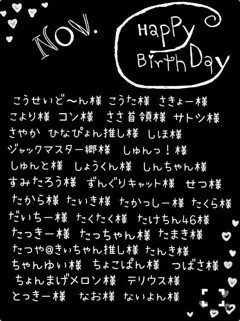 Nov.
Happy
Birthday
こうせいど〜ん様 こうた様 さきょー様
こより様 コン様 ささ首領様 サトシ様
さやか ひなぴょん推し様 しほ様
ジャックマスター郷様 しゅんっ!様
しゅんと様 しょうくん様 しんちゃん様
すみたろう様 ずんぐりキャット様 せつ様
たから様 たいき様 たかっしー様 たくら様
だいちー様 たくたく様 たけちん46様
たっきー様 たっちゃん様 たまき様
たつや@きぃちゃん推し様 たんき様
ちゃんゆい様 ちょこぱん様 つばさ様
ちょんまげメロン様 テリウス様
とっきー様 なお様 ないよん様